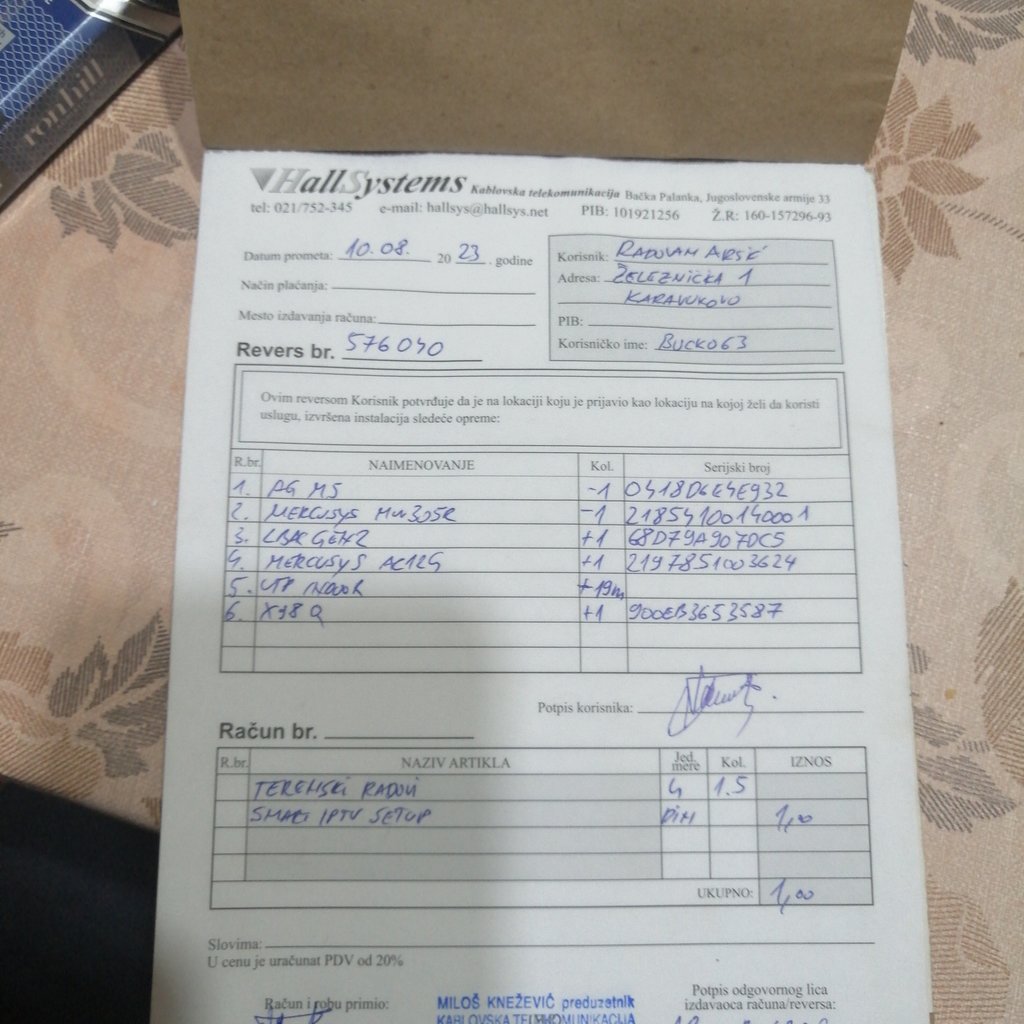 ronhill
HallSystems Kablovska telekomunikacija Bačka Palanka, Jugoslovenske armije 33
tel: 021/752-345 e-mail: hallsys@hallsys.net PIB: 101921256 Ž.R: 160-157296-93
Datum prometa: 10.08. 2023. godine
Način plaćanja:
Mesto izdavanja računa:
Revers br. 576040
Korisnik: RADOVAN ARSIĆ
Adresa: ŽELEZNIČKA 1
KARAVUKOVO
PIB:
Korisničko ime: BUCKO63
Ovim reversom Korisnik potvrđuje da je na lokaciji koju je prijavio kao lokaciju na kojoj želi da koristi
uslugu, izvršena instalacija sledeće opreme:
R.br. NAIMENOVANJE Kol. Serijski broj
1. AG M5 -1 0418D6E4E932
2. MERCUSYS MW305R -1 21854100140001
3. LBAC GEN2 +1 68D79A907DC5
4. MERCUSYS AC12G +1 2197851003624
5. UTP INDOOR +19m
6. X98Q +1 900EB3653587
Potpis korisnika:
Račun br.
R.br. NAZIV ARTIKLA Jed. mere Kol. IZNOS
TERENSKI RADOVI h 1.5
SMART IPTV SETUP DIN 1,00
UKUPNO: 1,00
Slovima:
U cenu je uračunat PDV od 20%
Račun i robu primio:
MILOŠ KNEŽEVIĆ preduzetnik
KABLOVSKA TELEKOMUNIKACIJA
Potpis odgovornog lica
izdavaoca računa/reversa: